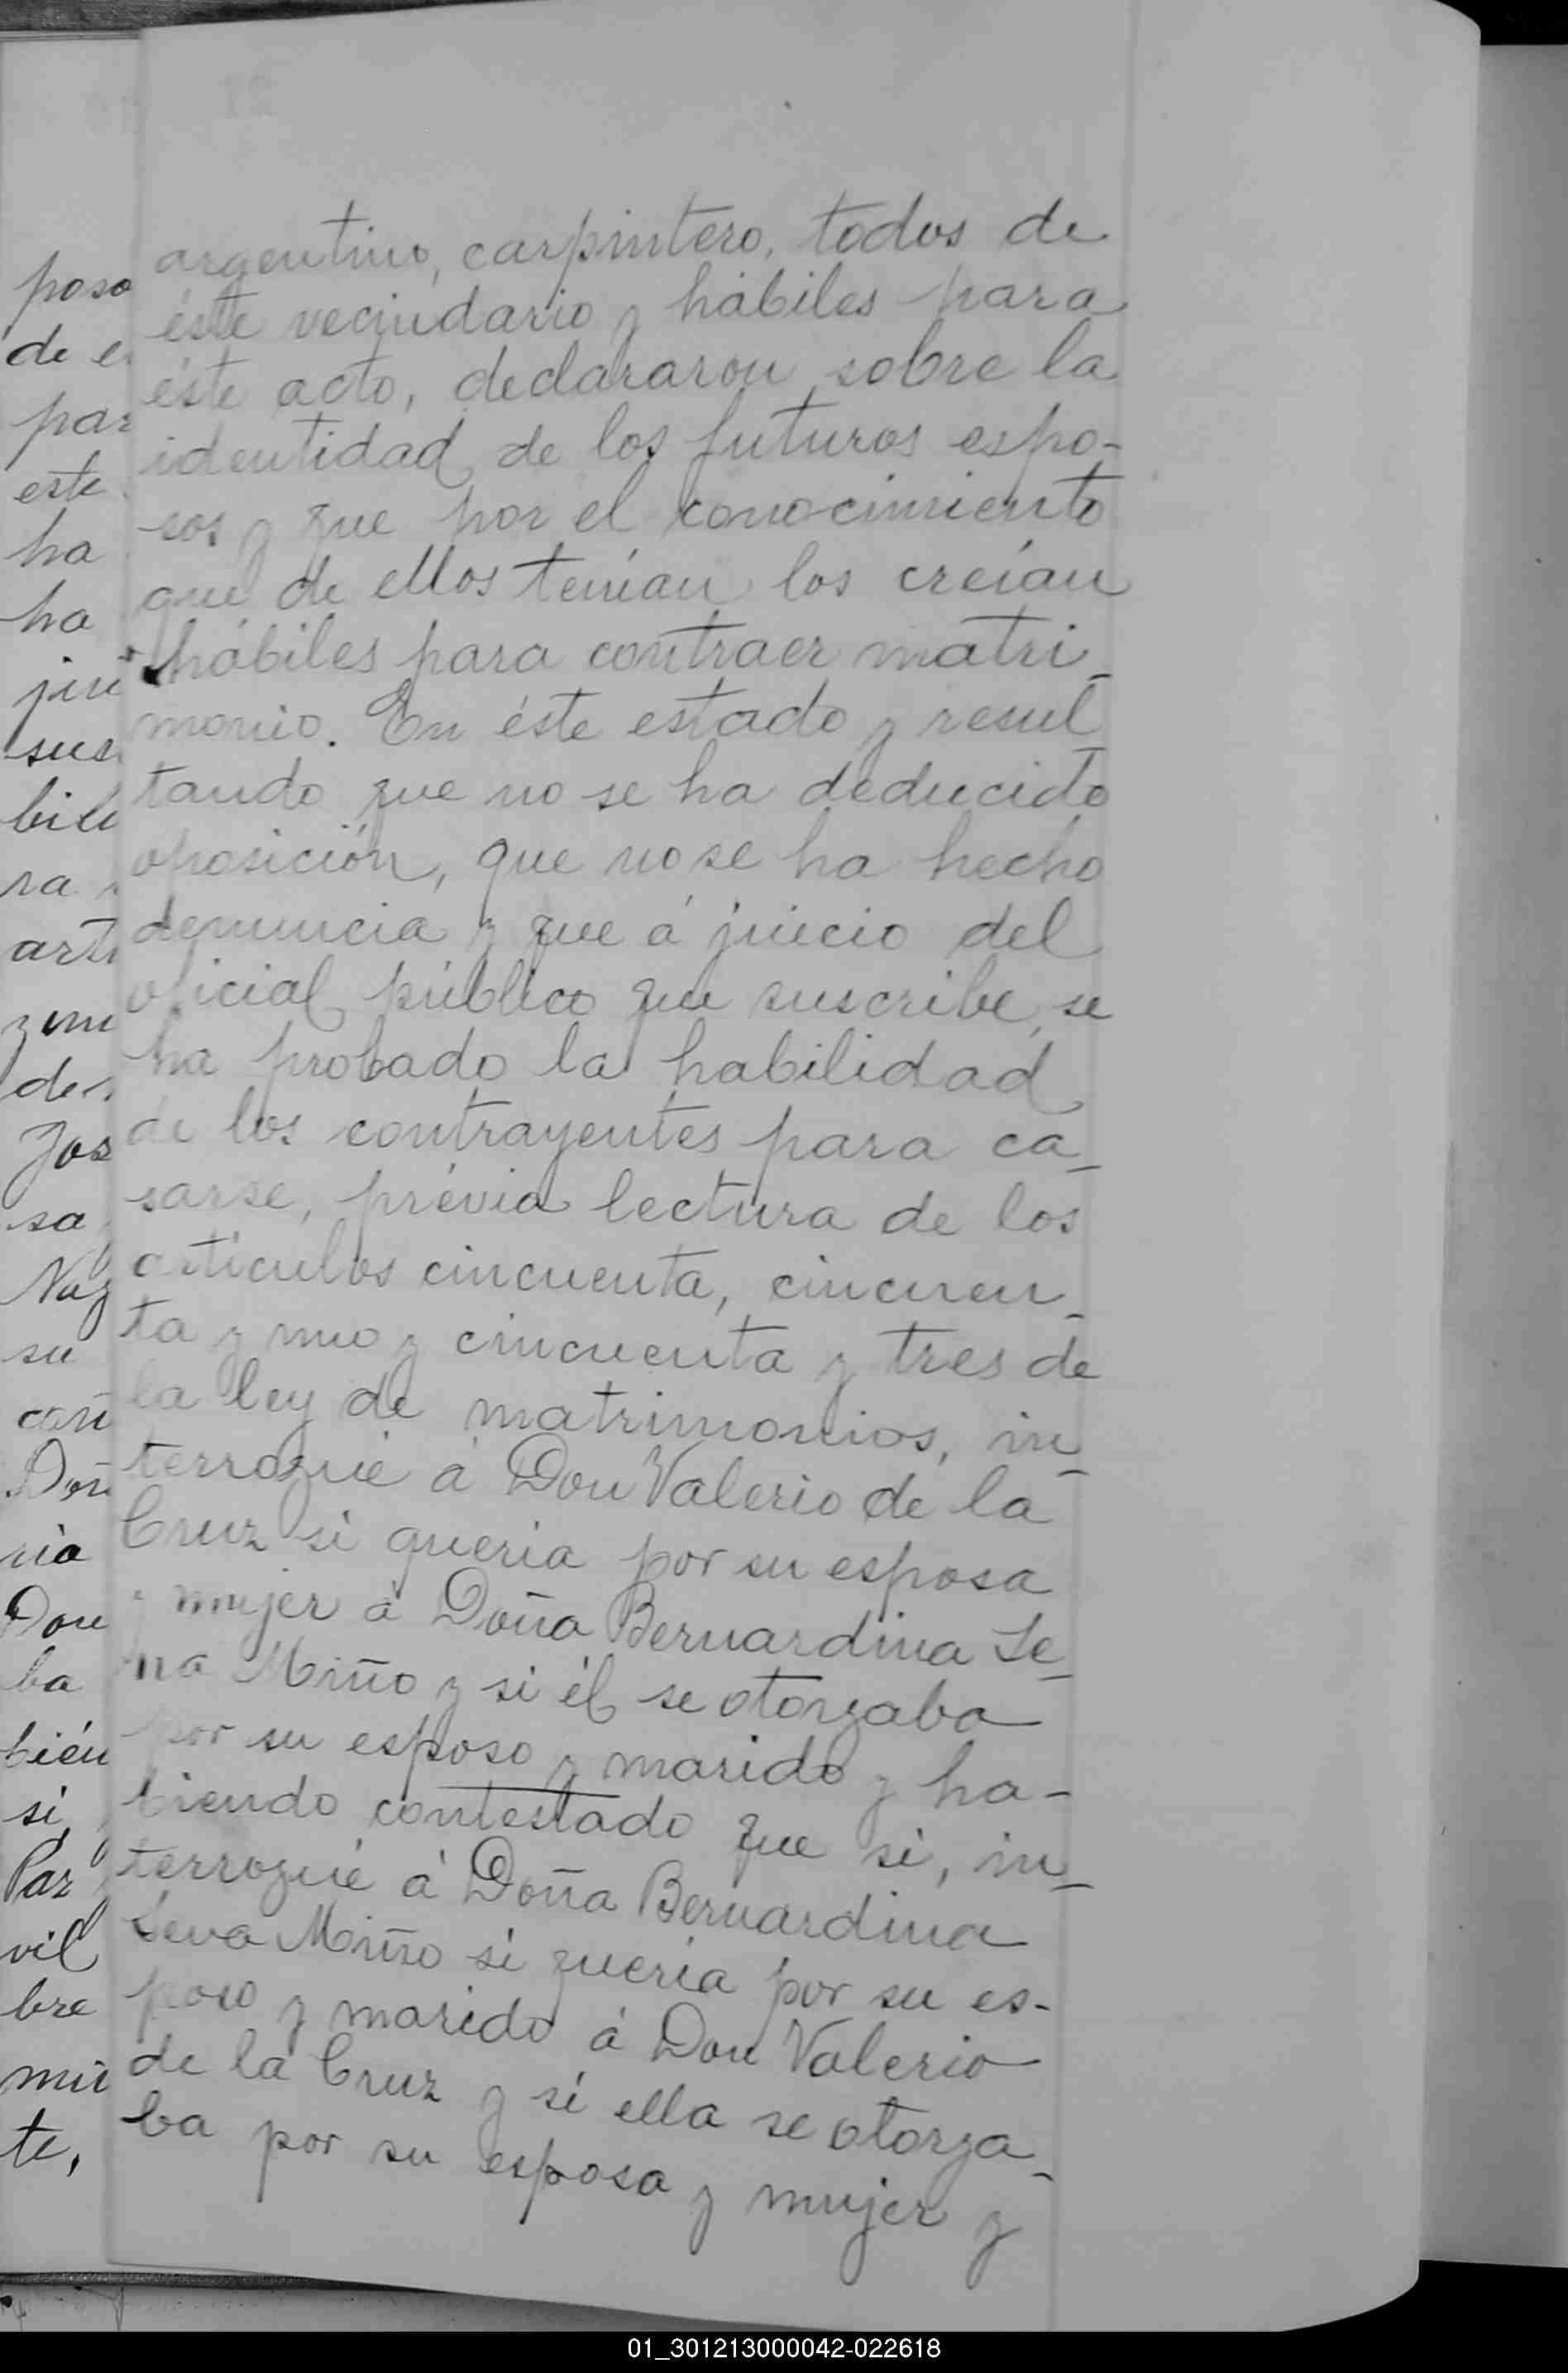 argentino, carpintero, todos de
éste vecindario y hábiles para
éste acto, declararon sobre la
identidad de los futuros espo-
sos y que por el conocimiento
que de ellos tenían los creían
hábiles para contraer matri-
monio. En éste estado y resul-
tando que no se ha deducido
oposición, que no se ha hecho
denuncia y que á juicio del
oficial público que suscribe, se
ha probado la habilidad
de los contrayentes para ca-
sarse, prévia lectura de los
artículos cincuenta, cincuen-
ta y uno y cincuenta y tres de
la ley de matrimonios, in-
terrogué á Don Valerio de la
Cruz si queria por su esposa
y mujer á Doña Bernardina Le-
na Miño y si él se otorgaba
por su esposo y marido y ha-
biendo contestado que si, in-
terrogué á Doña Bernardina
Miño si quería por su es-
poso y marido á Don Valerio
de la Cruz y si ella se otorga-
ba por su esposa y mujer y
poso
de e
par
este
ha
ha
jui
sus
bili
ra
arti
y un
de
Jos
sa
Naz
su
con
Doñ
ria
Don
ba
bién
si
Par
vil
bre
mi
te,
01_301213000042-022618